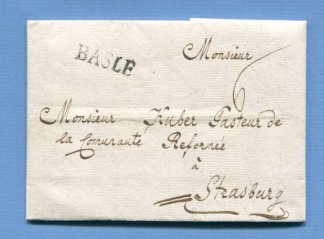 BASLE
Monsieur
6
Monsieur Huber Pasteur de
la Comunauté Reformée
à
Strasburg